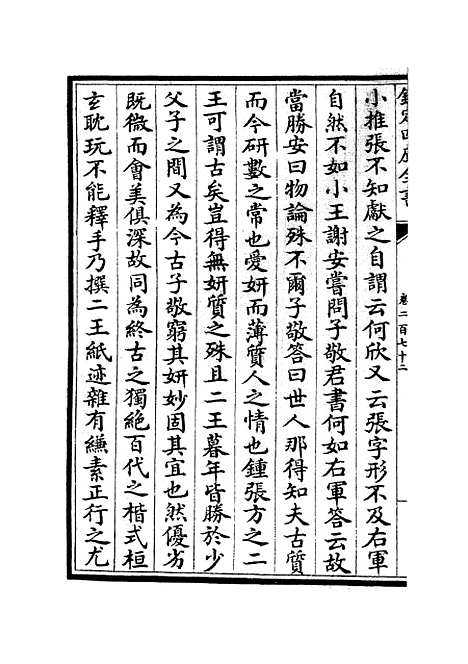 欽定四庫全書
卷二百七十二
小推張不知獻之自謂云何欣又云張字形不及右軍
自然不如小王謝安嘗問子敬君書何如右軍答云故
當勝安曰物論殊不爾子敬答曰世人那得知夫古質
而今研數之常也愛妍而薄質人之情也鍾張方之二
王可謂古矣豈得無妍質之殊且二王暮年皆勝於少
父子之間又為今古子敬窮其妍妙固其宜也然優劣
既微而會美俱深故同為終古之獨絕百代之楷式桓
玄耽玩不能釋手乃撰二王紙迹雜有縑素正行之尤